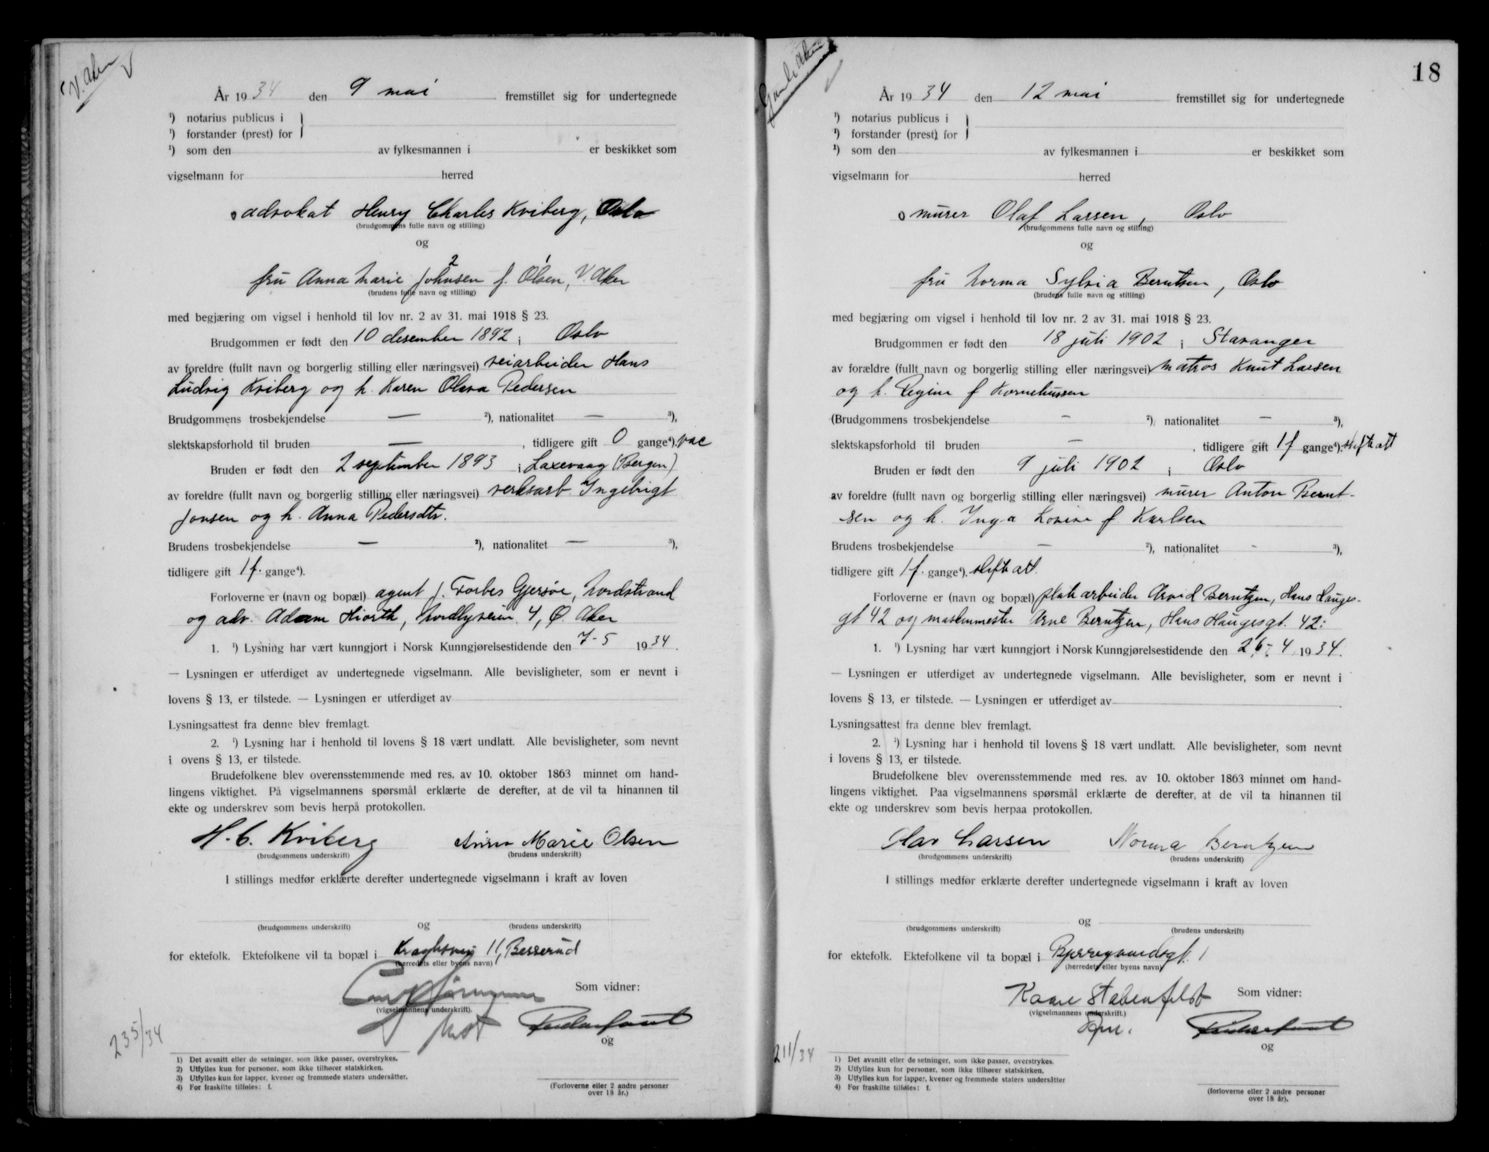 V. Aker
År 1934 den 9 mai fremstillet sig for undertegnede
¹) notarius publicus i
¹) forstander (prest) for
¹) som den av fylkesmannen i er beskikket som
vigselmann for herred
advokat Henry Charles Kviberg, Oslo
(brudgommens fulle navn og stilling)
og
2 1
fru Anna Marie Johnsen f. Olsen, V. Aker
(brudens fulle navn og stilling)
med begjæring om vigsel i henhold til lov nr. 2 av 31. mai 1918 § 23.
Brudgommen er født den 10 desember 1892 i Oslo
av foreldre (fullt navn og borgerlig stilling eller næringsvei) veiarbeider Hans
Ludvig Kviberg og h. Karen Olava Pedersen
Brudgommens trosbekjendelse — ²), nationalitet — ³),
slektskapsforhold til bruden — , tidligere gift 0 gange⁴). vac
Bruden er født den 2 september 1893 i Laxevaag (Bergen)
av foreldre (fullt navn og borgerlig stilling eller næringsvei) verksarb Ingebrigt
Jonsen og h. Anna Pedersdtr.
Brudens trosbekjendelse — ²), nationalitet — ³),
tidligere gift 1 f. gange⁴).
Forloverne er (navn og bopæl) agent J. Forbes Gjersøe, Nordstrand
og adv. Adam Hiorth, Nordbyveien 4, Ø. Aker
1. ¹) Lysning har vært kunngjort i Norsk Kunngjørelsestidende den 7-5 1934.
— Lysningen er utferdiget av undertegnede vigselmann. Alle bevisligheter, som er nevnt i
lovens § 13, er tilstede. — Lysningen er utferdiget av
Lysningsattest fra denne blev fremlagt.
2. ¹) Lysning har i henhold til lovens § 18 vært undlatt. Alle bevisligheter, som nevnt
i ovens § 13, er tilstede.
Brudefolkene blev overensstemmende med res. av 10. oktober 1863 minnet om hand-
lingens viktighet. På vigselmannens spørsmål erklærte de derefter, at de vil ta hinannen til
ekte og underskrev som bevis herpå protokollen.
H. C. Kviberg Anna Marie Olsen
(brudgommens underskrift) (brudens underskrift)
I stillings medfør erklærte derefter undertegnede vigselmann i kraft av loven
og
(brudgommens underskrift) (brudens underskrift)
for ektefolk. Ektefolkene vil ta bopæl i 11, Besserud
(herredets eller byens navn)
Som vidner:
(vigselmannens underskrift)
og
235/34
1) Det avsnitt eller de setninger, som ikke passer, overstrykes.
2) Utfylles kun for personer, som ikke tilhører statskirken.
3) Utfylles kun for lapper, kvener og fremmede staters undersåtter.
4) For fraskilte tilføies: f.
(Forloverne eller 2 andre personer
over 18 år.)
18
Gamle Aker
År 1934 den 12 mai fremstillet sig for undertegnede
¹) notarius publicus i
¹) forstander (prest) for
¹) som den av fylkesmannen i er beskikket som
vigselmann for herred
murer Olaf Larsen, Oslo
(brudgommens fulle navn og stilling)
og
fru Norma Sylvia Berntsen, Oslo
(brudens fulle navn og stilling)
med begjæring om vigsel i henhold til lov nr. 2 av 31. mai 1918 § 23.
Brudgommen er født den 18 juli 1902 i Stavanger
av forældre (fullt navn og borgerlig stilling eller næringsvei) matros Knut Larsen
og h. Regine f Korneliussen
(Brudgommens trosbekjendelse — ²), nationalitet — ³),
slektskapsforhold til bruden — , tidligere gift 1 f gange⁴). skiftatt
Bruden er født den 9 juli 1902 i Oslo
av foreldre (fullt navn og borgerlig stilling eller næringsvei) murer Anton Bernt-
sen og h. Inga Lovise f Karlsen
Brudens trosbekjendelse — ²), nationalitet - ³),
tidligere gift 1 f. gange⁴). skiftatt.
Forloverne er (navn og bopæl) platearbeider Arvid Berntzen, Hans Hauges-
gt 42 og maskinmester Arne Berntzen, Hans Haugesgt. 42.
1. ¹) Lysning har vært kunngjort i Norsk Kunngjørelsestidende den 26-4 1934.
— Lysningen er utferdiget av undertegnede vigselmann. Alle bevisligheter, som er nevnt i
lovens § 13, er tilstede. — Lysningen er utferdiget av
Lysningsattest fra denne blev fremlagt.
2. ¹) Lysning har i henhold til lovens § 18 vært undlatt. Alle bevisligheter, som nevnt
i lovens § 13, er tilstede.
Brudefolkene blev overensstemmende med res. av 10. oktober 1863 minnet om hand-
lingens viktighet. Paa vigselmannens spørsmål erklærte de derefter, at de vil ta hinannen til
ekte og underskrev som bevis herpaa protokollen.
Olav Larsen Norma Berntzen
(brudgommens underskrift) (brudens underskrift)
I stillings medfør erklærte derefter undertegnede vigselmann i kraft av loven
og
(brudgommens underskrift) (brudens underskrift)
for ektefolk. Ektefolkene vil ta bopæl i Bjerregaardsgt. 1
(herredets eller byens navn)
Kaare Stabenfeldt Som vidner:
(vigselmannens underskrift.)
og
211/34
1) Det avsnitt eller de setninger, som ikke passer, overstrykes.
2) Utfylles kun for personer, som ikke tilhører statskirken.
3) Utfylles kun for lapper, kvener og fremmede staters undersåtter
4) For fraskilte tilføies: f.
(forloverne eller 2 andre personer
over 18 år).